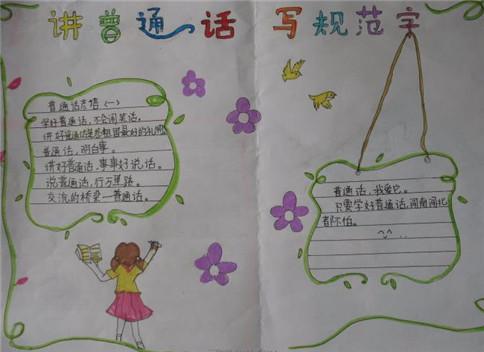 讲普通话 写规范字
普通话老语（一）
学好普通话，不会闹笑话。
讲好普通话是
最好的礼物
普通话，明白事。
讲好普通话，事事好说话。
说普通话，行万里路。
交流的桥梁—普通话。
普通话，我爱它。
只要学好普通话，闯南闯北
都不怕。